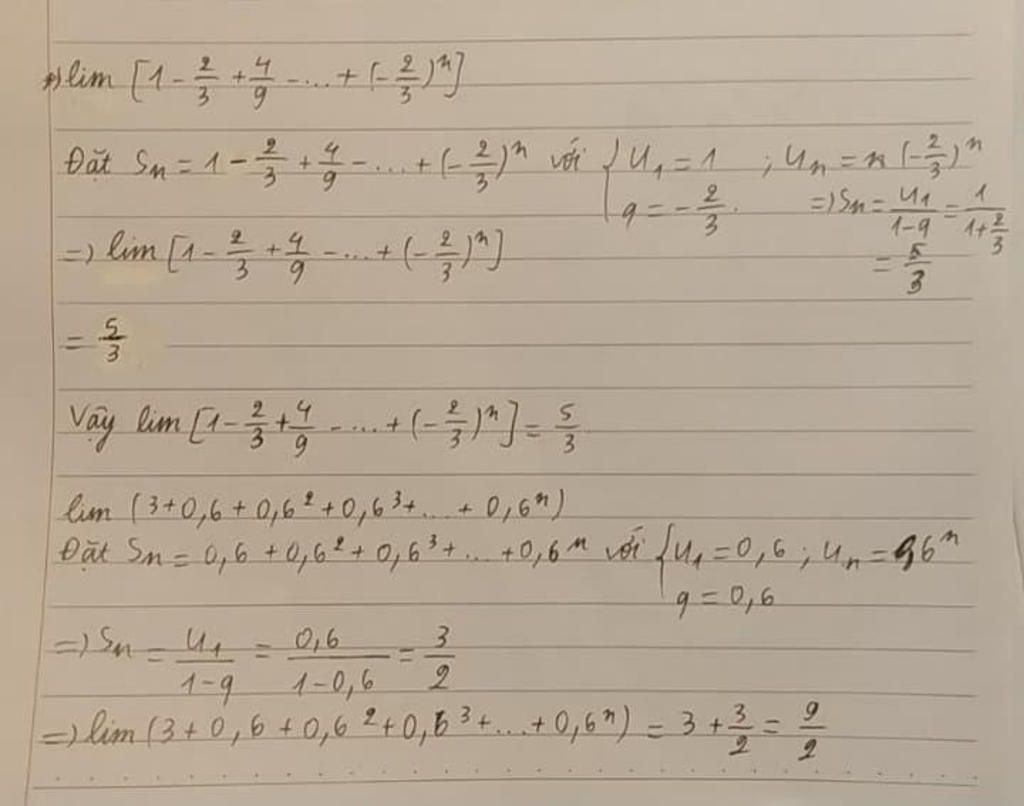 *) lim [1 - 2/3 + 4/9 - ... + (-2/3)^n]
Đặt Sn = 1 - 2/3 + 4/9 - ... + (-2/3)^n với { U1 = 1 ; Un = (-2/3)^n
q = -2/3. => Sn = U1/(1-q) = 1/(1+2/3)
=> lim [1 - 2/3 + 4/9 - ... + (-2/3)^n] = 5/3
= 5/3
Vậy lim [1 - 2/3 + 4/9 - ... + (-2/3)^n] = 5/3
lim (3 + 0,6 + 0,6² + 0,6³ + ... + 0,6^n)
Đặt Sn = 0,6 + 0,6² + 0,6³ + ... + 0,6^n với { U1 = 0,6 ; Un = 0,6^n
q = 0,6
=> Sn = U1/(1-q) = 0,6/(1-0,6) = 3/2
=> lim (3 + 0,6 + 0,6² + 0,6³ + ... + 0,6^n) = 3 + 3/2 = 9/2